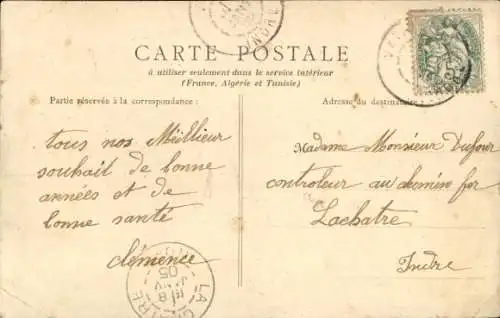 NORD
CARTE POSTALE
à utiliser seulement dans le service intérieur
(France, Algérie et Tunisie)
Partie réservée à la correspondance :
Adresse du destinataire :
tous nos Meillieur
souhait de bonne
années et de
bonne santé
clémence
Madame Monsieur Dufour
controleur au chemin fer
Lachatre
Indre
LA CHATRE
8
05